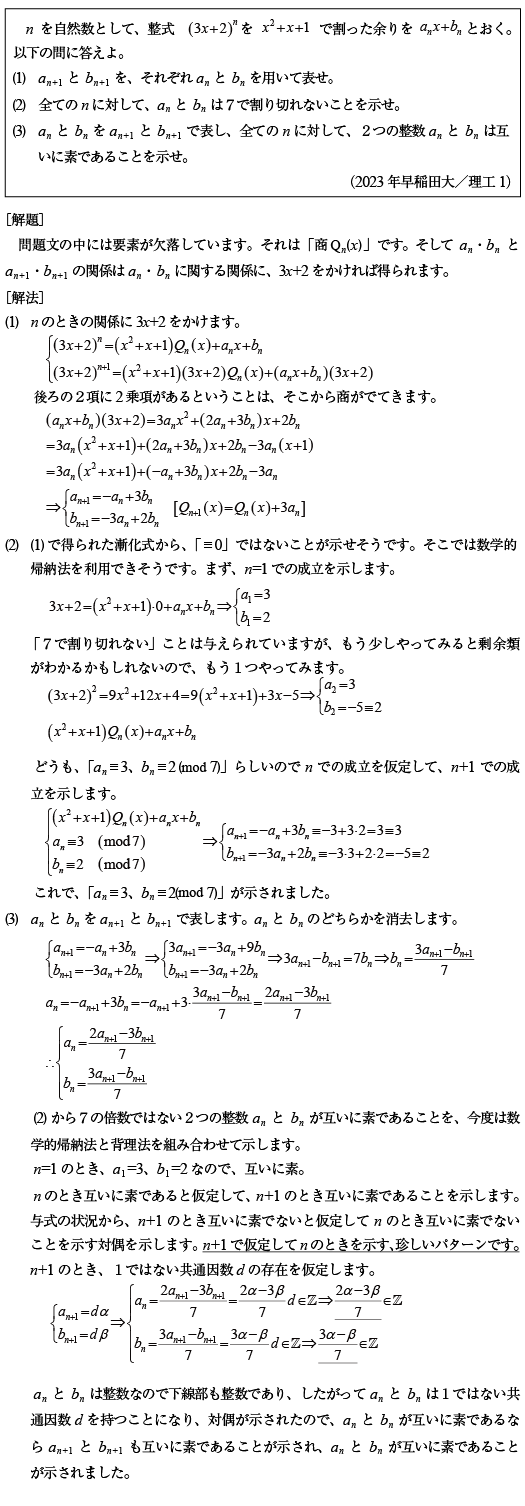 n を自然数として、整式 (3x+2)^n を x^2+x+1 で割った余りを a_n x+b_n とおく。
以下の問に答えよ。
(1) a_{n+1} と b_{n+1} を、それぞれ a_n と b_n を用いて表せ。
(2) 全ての n に対して、a_n と b_n は７で割り切れないことを示せ。
(3) a_n と b_n を a_{n+1} と b_{n+1} で表し、全ての n に対して、２つの整数 a_n と b_n は互
いに素であることを示せ。
（2023 年早稲田大／理工 1）
［解題］
問題文の中には要素が欠落しています。それは「商 Q_n(x)」です。そして a_n・b_n と
a_{n+1}・b_{n+1} の関係は a_n・b_n に関する関係に、3x+2 をかければ得られます。
［解法］
(1) n のときの関係に 3x+2 をかけます。
{(3x+2)^n=(x^2+x+1)Q_n(x)+a_n x+b_n
(3x+2)^{n+1}=(x^2+x+1)(3x+2)Q_n(x)+(a_n x+b_n)(3x+2)
後ろの２項に２乗項があるということは、そこから商がでてきます。
(a_n x+b_n)(3x+2)=3a_n x^2+(2a_n+3b_n)x+2b_n
=3a_n(x^2+x+1)+(2a_n+3b_n)x+2b_n-3a_n(x+1)
=3a_n(x^2+x+1)+(-a_n+3b_n)x+2b_n-3a_n
⇒{a_{n+1}=-a_n+3b_n
b_{n+1}=-3a_n+2b_n [Q_{n+1}(x)=Q_n(x)+3a_n]
(2) (1) で得られた漸化式から、「≡0」ではないことが示せそうです。そこでは数学的
帰納法を利用できそうです。まず、n=1 での成立を示します。
3x+2=(x^2+x+1)·0+a_n x+b_n⇒{a_1=3
b_1=2
「７で割り切れない」ことは与えられていますが、もう少しやってみると剰余類
がわかるかもしれないので、もう１つやってみます。
(3x+2)^2=9x^2+12x+4=9(x^2+x+1)+3x-5⇒{a_2=3
b_2=-5≡2
(x^2+x+1)Q_n(x)+a_n x+b_n
どうも、「a_n≡3、b_n≡2 (mod 7)」らしいので n での成立を仮定して、n+1 での成
立を示します。
{(x^2+x+1)Q_n(x)+a_n x+b_n
a_n≡3 (mod 7)
b_n≡2 (mod 7)
⇒{a_{n+1}=-a_n+3b_n≡-3+3·2=3≡3
b_{n+1}=-3a_n+2b_n≡-3·3+2·2=-5≡2
これで、「a_n≡3、b_n≡2(mod 7)」が示されました。
(3) a_n と b_n を a_{n+1} と b_{n+1} で表します。a_n と b_n のどちらかを消去します。
{a_{n+1}=-a_n+3b_n
b_{n+1}=-3a_n+2b_n
⇒{3a_{n+1}=-3a_n+9b_n
b_{n+1}=-3a_n+2b_n
⇒3a_{n+1}-b_{n+1}=7b_n⇒b_n=\frac{3a_{n+1}-b_{n+1}}{7}
a_n=-a_{n+1}+3b_n=-a_{n+1}+3·\frac{3a_{n+1}-b_{n+1}}{7}=\frac{2a_{n+1}-3b_{n+1}}{7}
∴{a_n=\frac{2a_{n+1}-3b_{n+1}}{7}
b_n=\frac{3a_{n+1}-b_{n+1}}{7}
(2) から７の倍数ではない２つの整数 a_n と b_n が互いに素であることを、今度は数
学的帰納法と背理法を組み合わせて示します。
n=1 のとき、a_1=3、b_1=2 なので、互いに素。
n のとき互いに素であると仮定して、n+1 のとき互いに素であることを示します。
与式の状況から、n+1 のとき互いに素でないと仮定して n のとき互いに素でない
ことを示す対偶を示します。n+1 で仮定して n のときを示す、珍しいパターンです。
n+1 のとき、１ではない共通因数 d の存在を仮定します。
{a_{n+1}=dα
b_{n+1}=dβ
⇒{a_n=\frac{2a_{n+1}-3b_{n+1}}{7}=\frac{2α-3β}{7}d∈ℤ⇒\frac{2α-3β}{7}∈ℤ
b_n=\frac{3a_{n+1}-b_{n+1}}{7}=\frac{3α-β}{7}d∈ℤ⇒\frac{3α-β}{7}∈ℤ
a_n と b_n は整数なので下線部も整数であり、したがって a_n と b_n は１ではない共
通因数 d を持つことになり、対偶が示されたので、a_n と b_n が互いに素であるな
ら a_{n+1} と b_{n+1} も互いに素であることが示され、a_n と b_n が互いに素であること
が示されました。